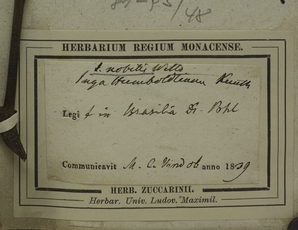 HERBARIUM REGIUM MONACENSE.
I. nobilis Willd
Inga Humboldtiana Kunth
Legi t in Brasilia D. Pohl
Communicavit M. C. Vindob anno 1839
HERB. ZUCCARINII.
Herbar. Univ. Ludov. Maximil.